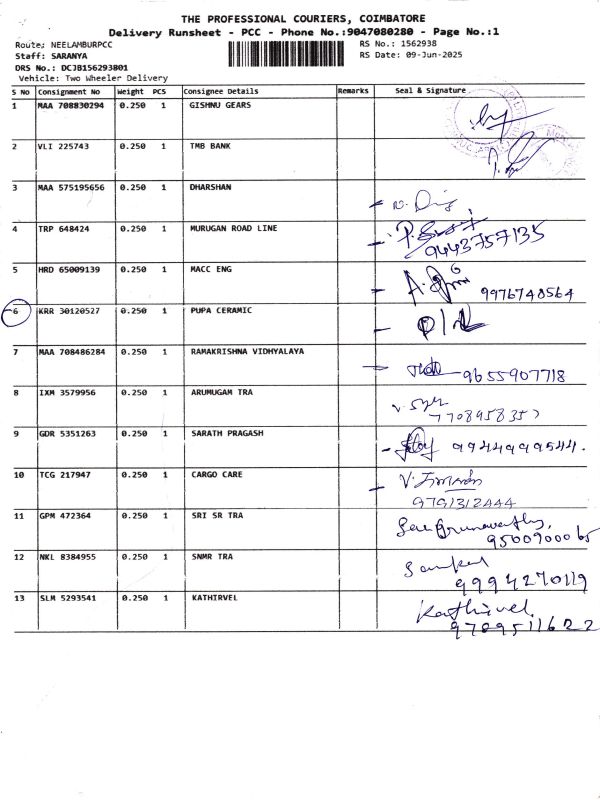 THE PROFESSIONAL COURIERS, COIMBATORE
Delivery Runsheet - PCC - Phone No.:9047080280 - Page No.:1
Route: NEELAMBURPCC
RS No.: 1562938
Staff: SARANYA
RS Date: 09-Jun-2025
DRS No.: DCJB156293801
Vehicle: Two Wheeler Delivery
S No Consignment No Weight PCS Consignee Details Remarks Seal & Signature
1 MAA 708830294 0.250 1 GISHNU GEARS
2 VLI 225743 0.250 1 TMB BANK
3 MAA 575195656 0.250 1 DHARSHAN
4 TRP 648424 0.250 1 MURUGAN ROAD LINE
9443757135
5 HRD 65009139 0.250 1 MACC ENG
9976748564
6 KRR 30120527 0.250 1 PUPA CERAMIC
7 MAA 708486284 0.250 1 RAMAKRISHNA VIDHYALAYA
9655907718
8 IXM 3579956 0.250 1 ARUMUGAM TRA
7708958357
9 GDR 5351263 0.250 1 SARATH PRAGASH
9944999544.
10 TCG 217947 0.250 1 CARGO CARE
9791312444
11 GPM 472364 0.250 1 SRI SR TRA
9500900065
12 NKL 8384955 0.250 1 SNMR TRA
9994270119
13 SLM 5293541 0.250 1 KATHIRVEL Kathirvel
9789511622